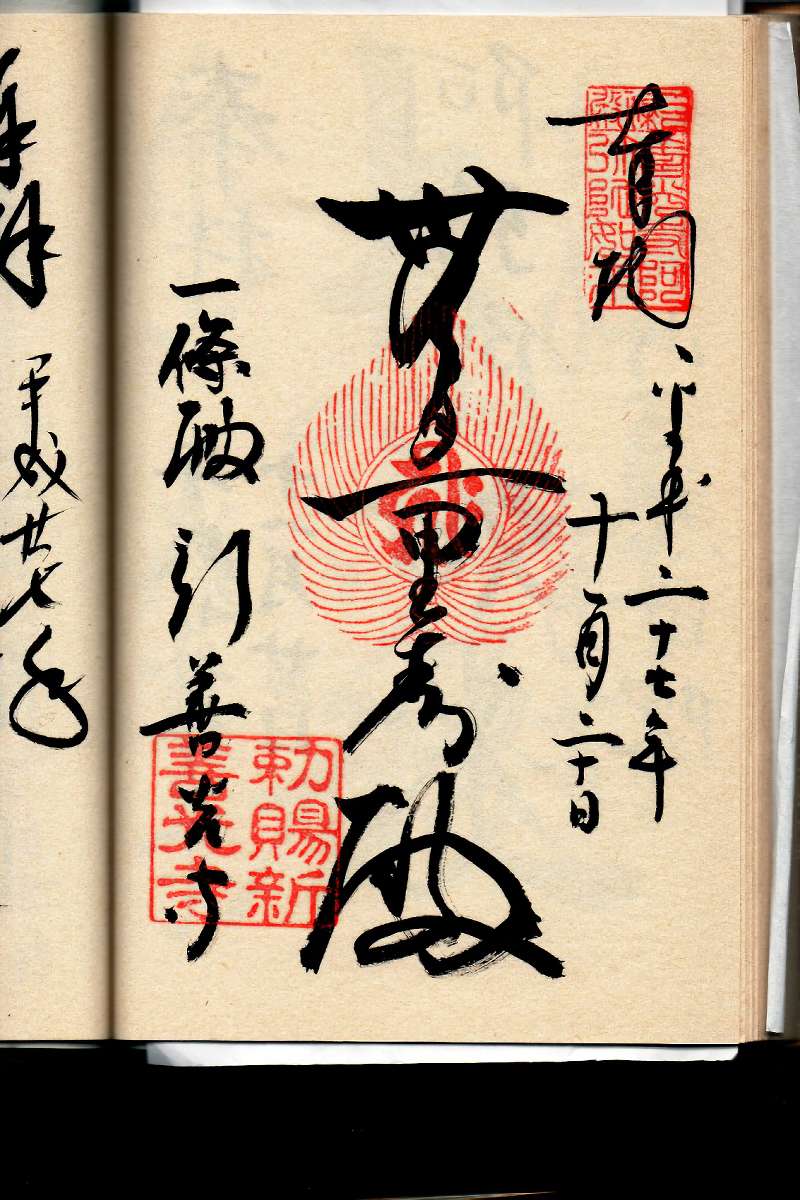 平成二十七年
十一月二十日
無量壽殿
一條殿 新善光寺
勅賜新
善光寺
拝 平成廿七年